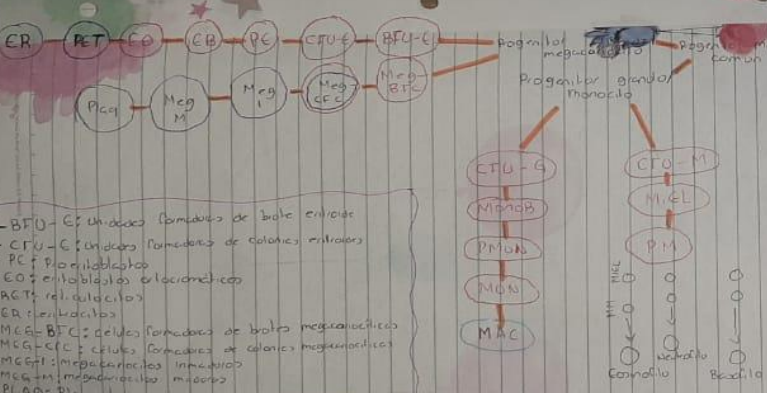 ER RET EO EB PE CFU-E BFU-E Progenitor
megacar
comun
Plaq Meg M Meg I Meg CFC Meg-BFC
Progenitor granulo/
monocito
CFU-G CFU-M
MonoB MIEL
PMON PM
MON
MAC
MIEL
MM
Eosinofilo Neutrofilo Basofilo
-BFU-E: Unidades formadoras de brote eritroide
-CFU-E: Unidades formadoras de colonias eritroides
PE: Proeritoblastos
EO: eritoblastos ortocromáticos
RET: reticulocitos
ER: eritrocitos
MEG-BFC: celulas formadoras de brotes megacariociticos
MEG-CFC: celulas formadoras de colonias megacariociticas
MEG-I: megacariocitos inmaduros
MEG-M: megacariocitos maduros
PLAQ-